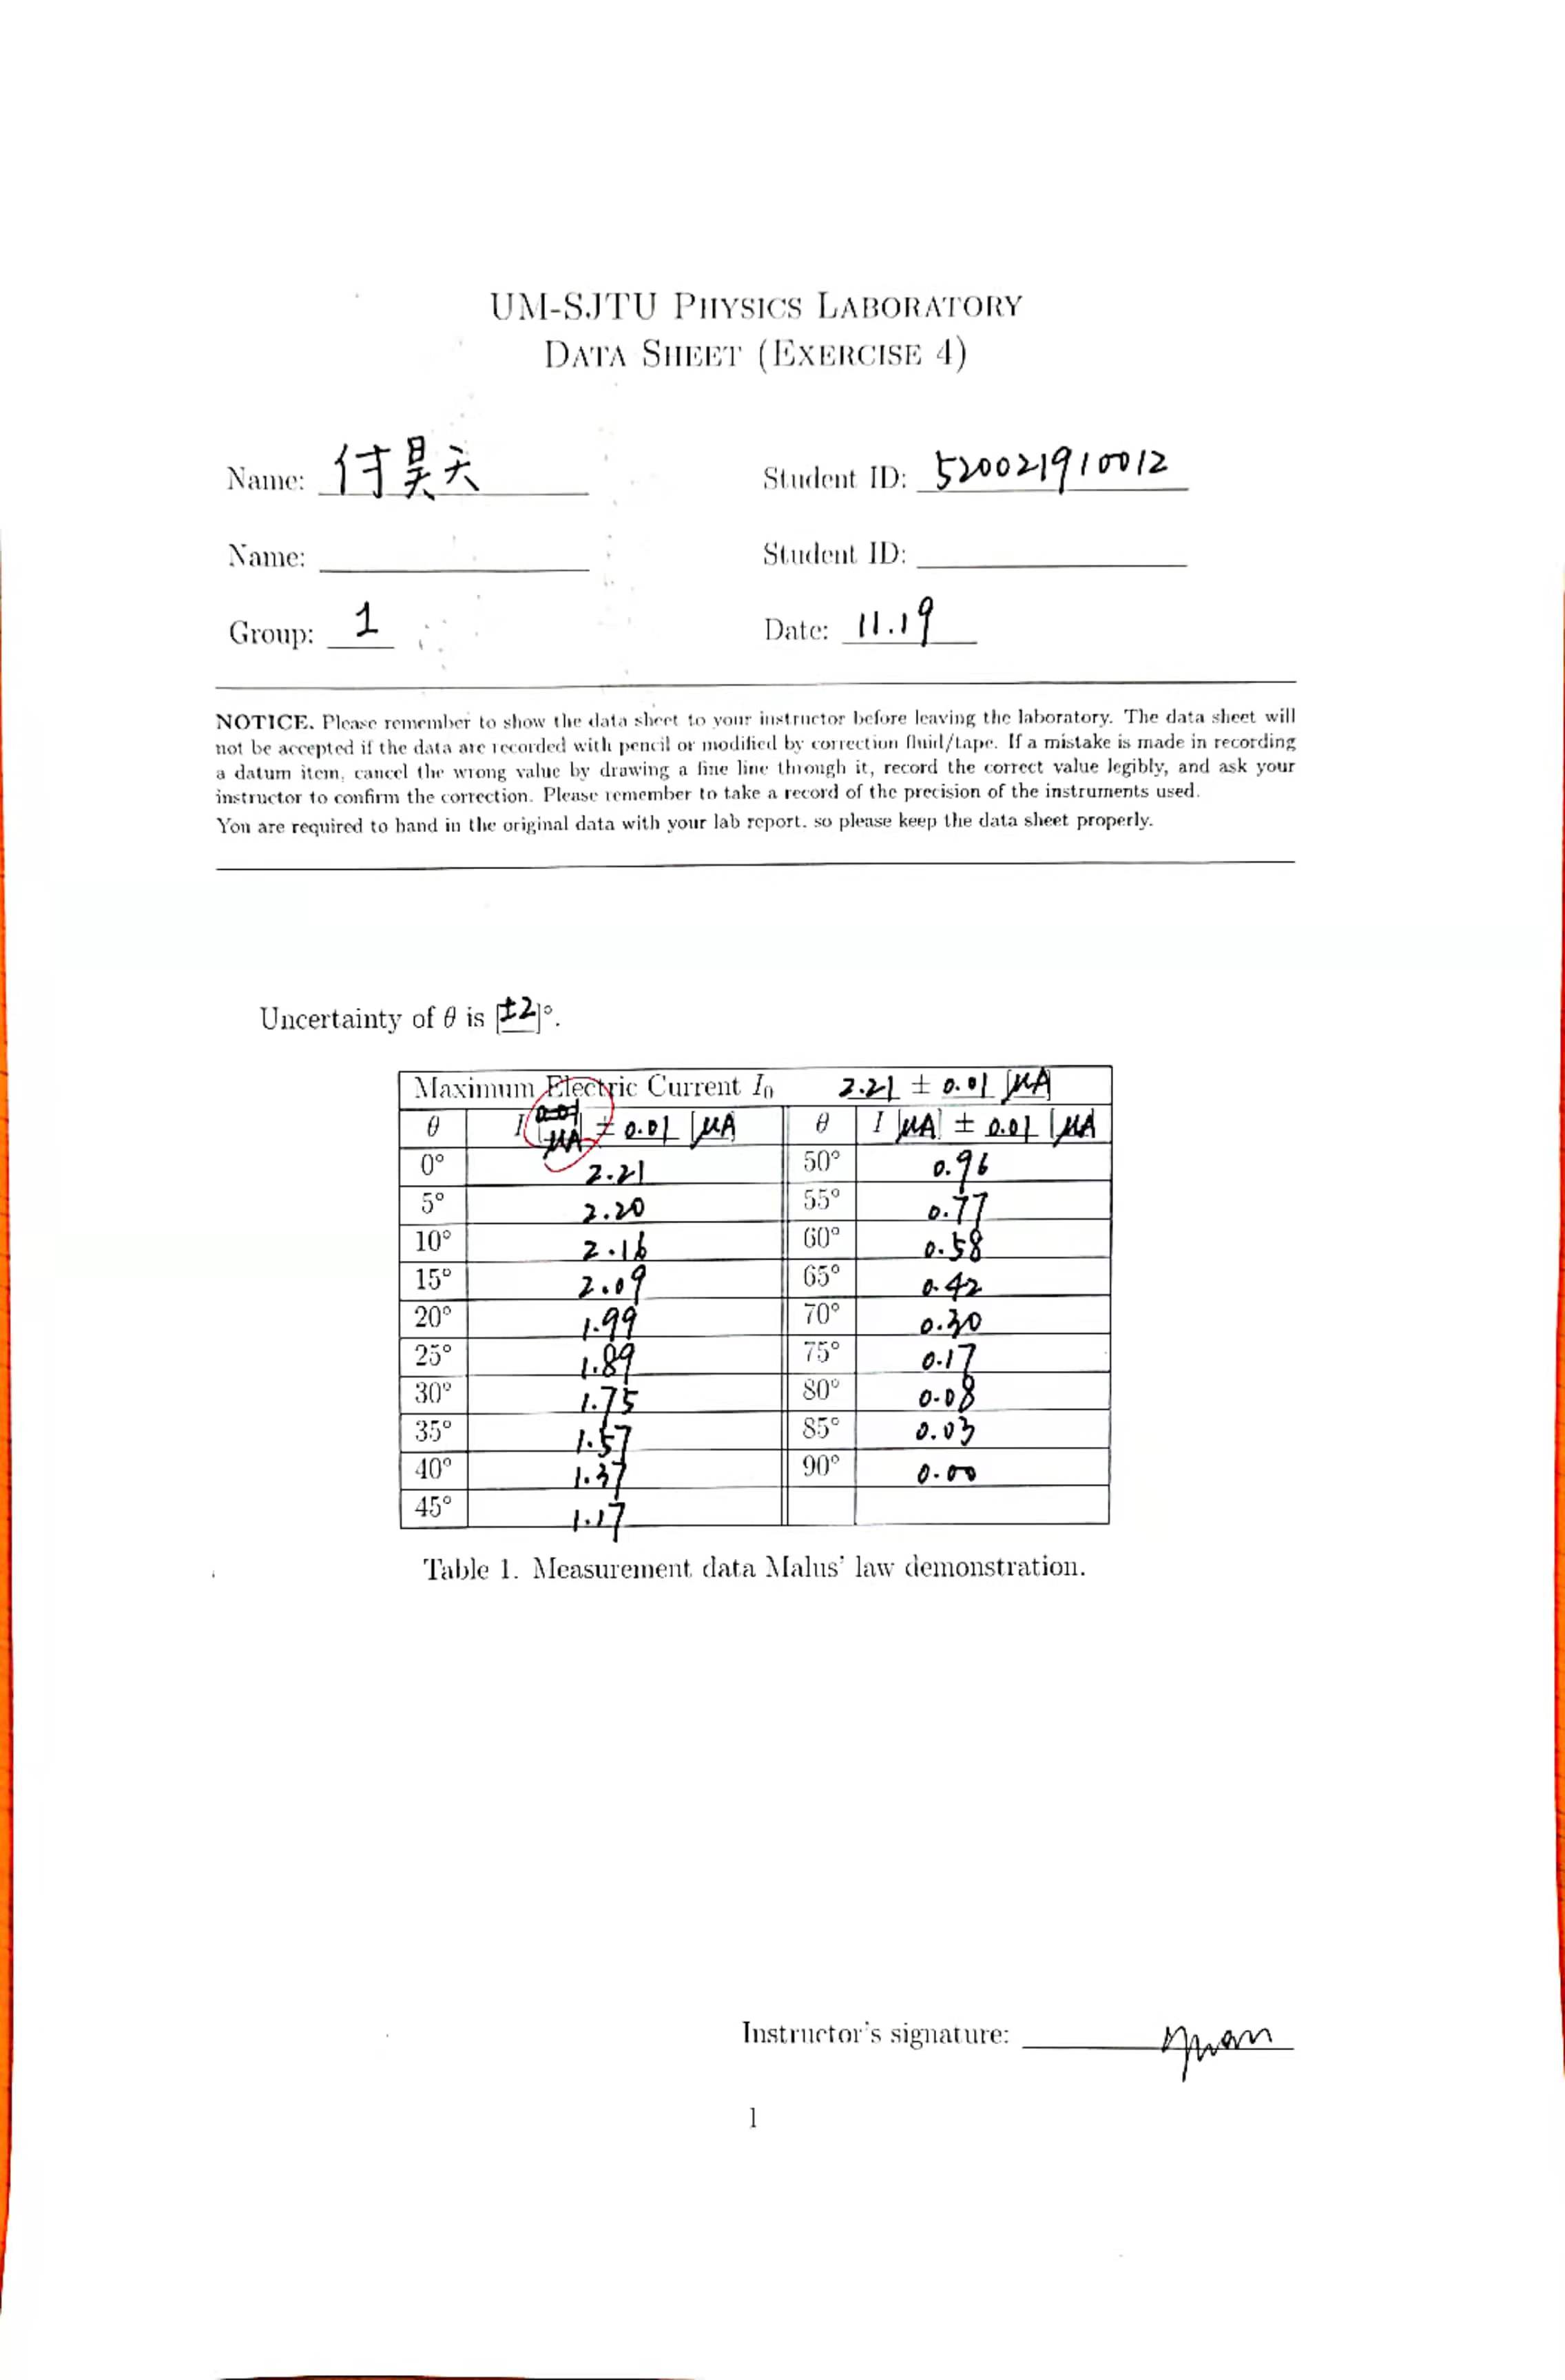 UM-SJTU PHYSICS LABORATORY
DATA SHEET (EXERCISE 4)
Name: 付昊天 Student ID: 520021910012
Name: Student ID:
Group: 1 Date: 11.19
NOTICE. Please remember to show the data sheet to your instructor before leaving the laboratory. The data sheet will
not be accepted if the data are recorded with pencil or modified by correction fluid/tape. If a mistake is made in recording
a datum item, cancel the wrong value by drawing a fine line through it, record the correct value legibly, and ask your
instructor to confirm the correction. Please remember to take a record of the precision of the instruments used.
You are required to hand in the original data with your lab report. so please keep the data sheet properly.
Uncertainty of θ is [±2]°.
Maximum Electric Current I₀ 2.21 ± 0.01 [μA]
θ I [μA] ± 0.01 [μA] θ I [μA] ± 0.01 [μA]
0° 2.21 50° 0.96
5° 2.20 55° 0.77
10° 2.16 60° 0.58
15° 2.09 65° 0.42
20° 1.99 70° 0.30
25° 1.89 75° 0.17
30° 1.75 80° 0.08
35° 1.57 85° 0.03
40° 1.37 90° 0.00
45° 1.17
Table 1. Measurement data Malus' law demonstration.
Instructor's signature:
1